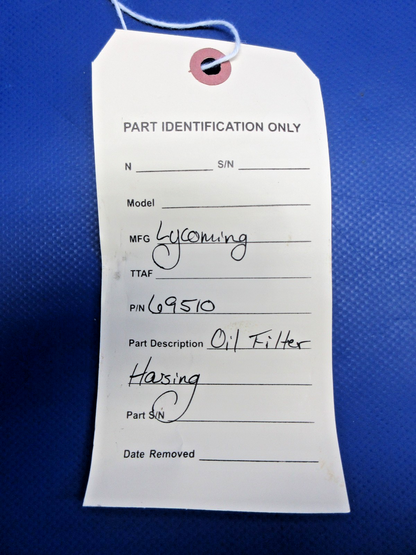 PART IDENTIFICATION ONLY
N S/N
Model
MFG Lycoming
TTAF
P/N 69510
Part Description Oil Filter
Hosing
Part S/N
Date Removed